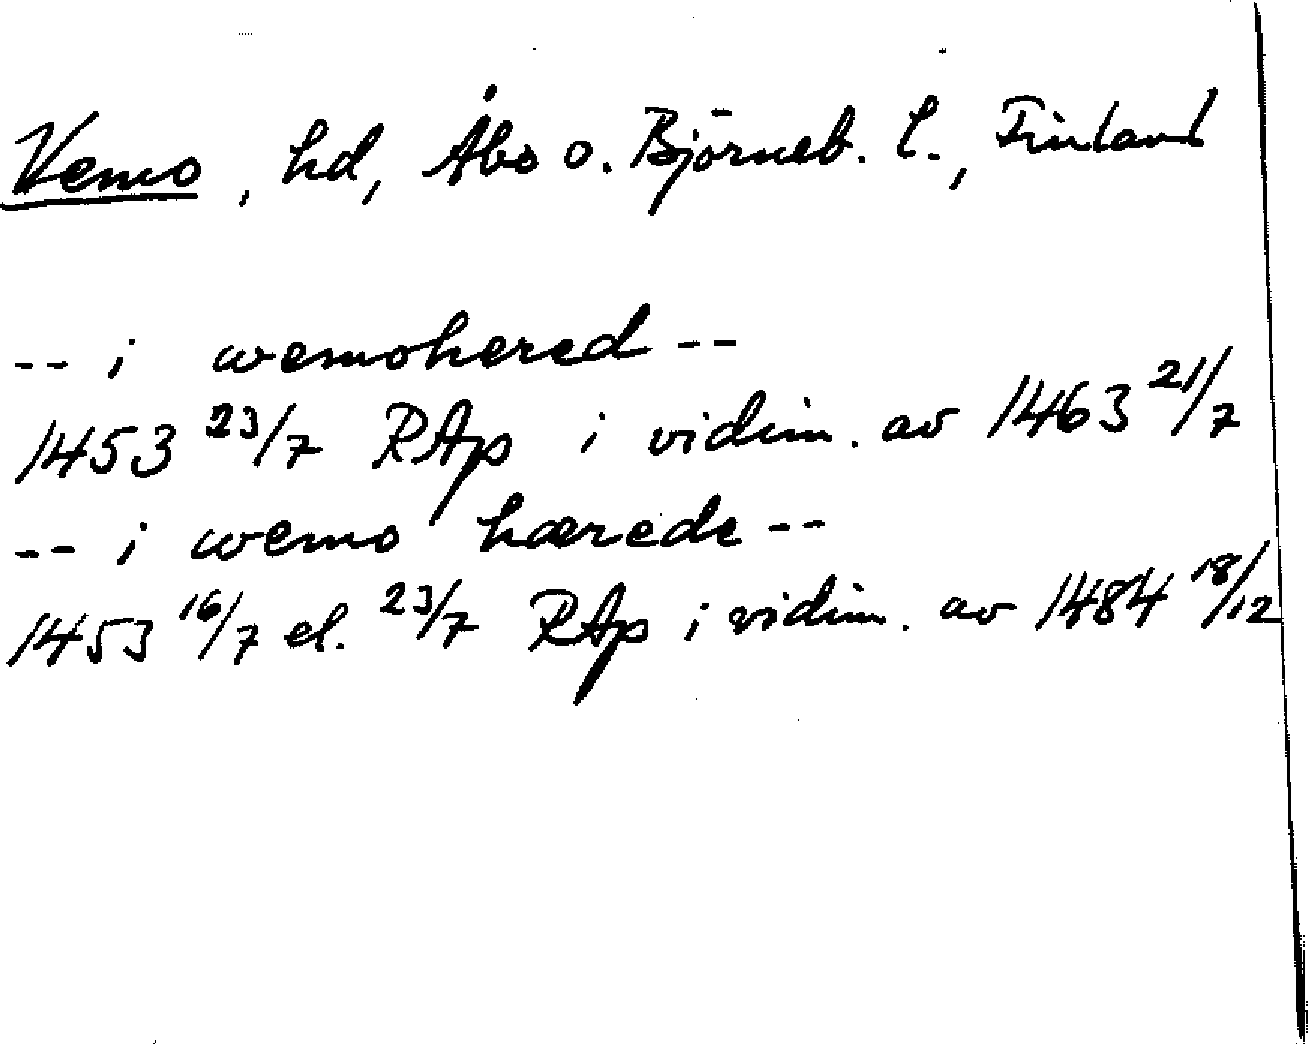 Vemo, hd, Åbo o. Björneb. l., Finland
-- i wemohered --
1453 23/7 RAp i vidim. av 1463 21/7
-- i wemo hærede --
1453 16/7 el. 23/7 RAp i vidim. av 1484 18/12